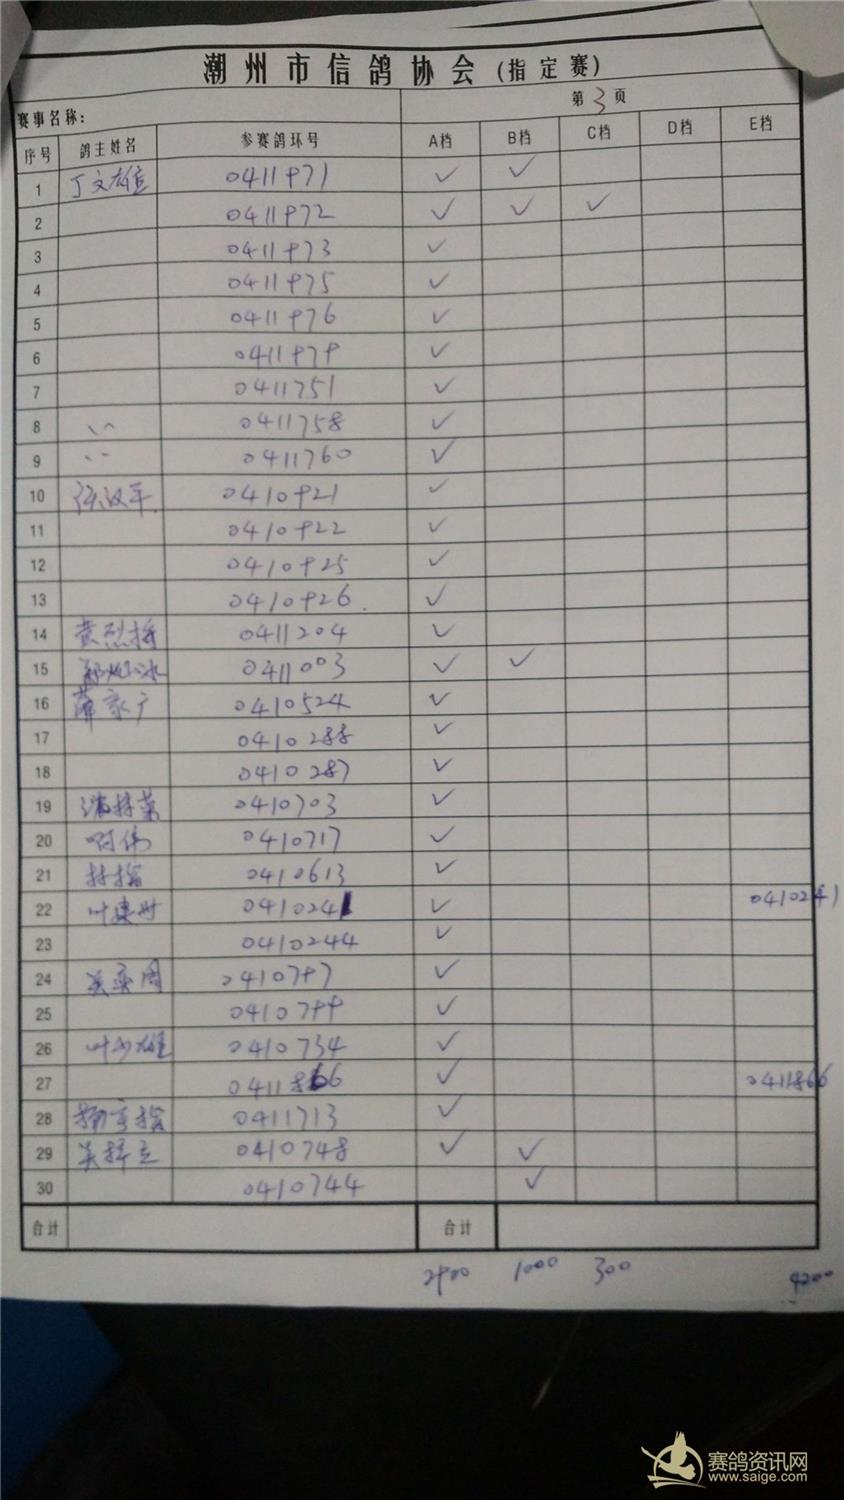 潮州市信鸽协会(指定赛)
赛事名称: 第3页
序号 鸽主姓名 参赛鸽环号 A档 B档 C档 D档 E档
1 丁文雄 0411971 ✓ ✓
2 0411972 ✓ ✓ ✓
3 0411973 ✓
4 0411975 ✓
5 0411976 ✓
6 0411979 ✓
7 0411751 ✓
8 〃 0411758 ✓
9 〃 0411760 ✓
10 0410921 ✓
11 0410922 ✓
12 0410925 ✓
13 0410926. ✓
14 黄烈 0411204 ✓
15 0411003 ✓ ✓
16 0410524 ✓
17 0410288 ✓
18 0410287 ✓
19 0410703 ✓
20 阿伟 0410717 ✓
21 0410613 ✓
22 0410241 ✓ 0410241
23 0410244 ✓
24 0410797 ✓
25 0410799 ✓
26 叶少雄 0410734 ✓
27 0411866 ✓ 0411866
28 0411713 ✓
29 0410748 ✓ ✓
30 0410744 ✓
合计 合计
2900 1000 300 4200
赛鸽资讯网
www.saige.com